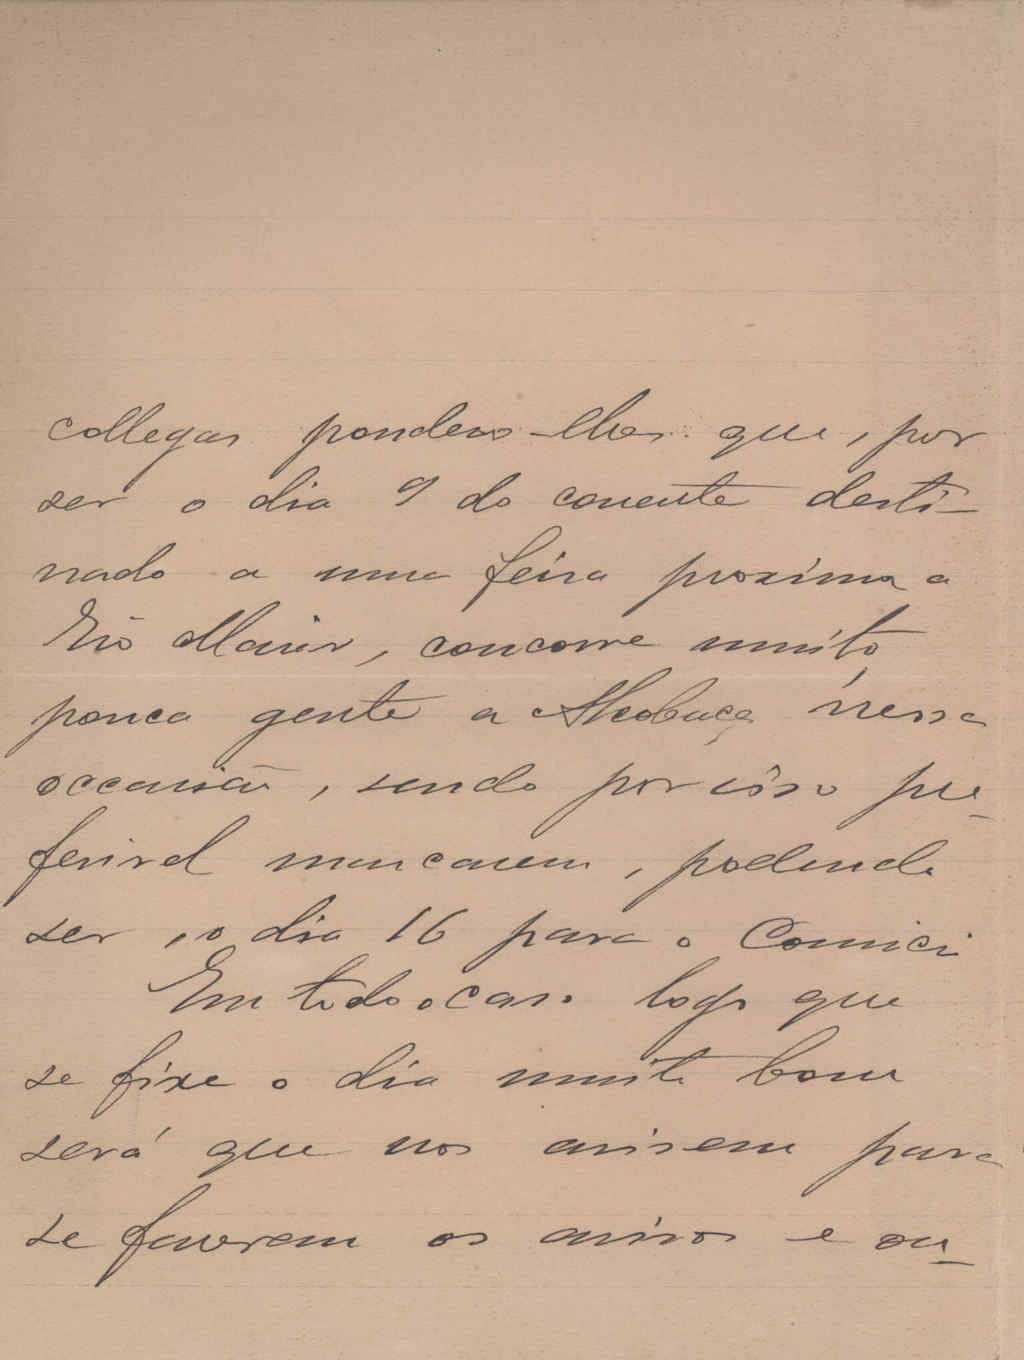 collegas pondero-lhes que, por
ser o dia 9 do corrente desti-
nado a uma feira proxima a
Rio Maior, concorre muito
pouca gente a Alcobaça n'essa
occasião, sendo por isso pre-
ferivel marcarem, podendo
ser, o dia 16 para o Comicio
Em todo o caso logo que
se fixe o dia muito bom
será que nos avisem para
se fazerem os avisos e ou-